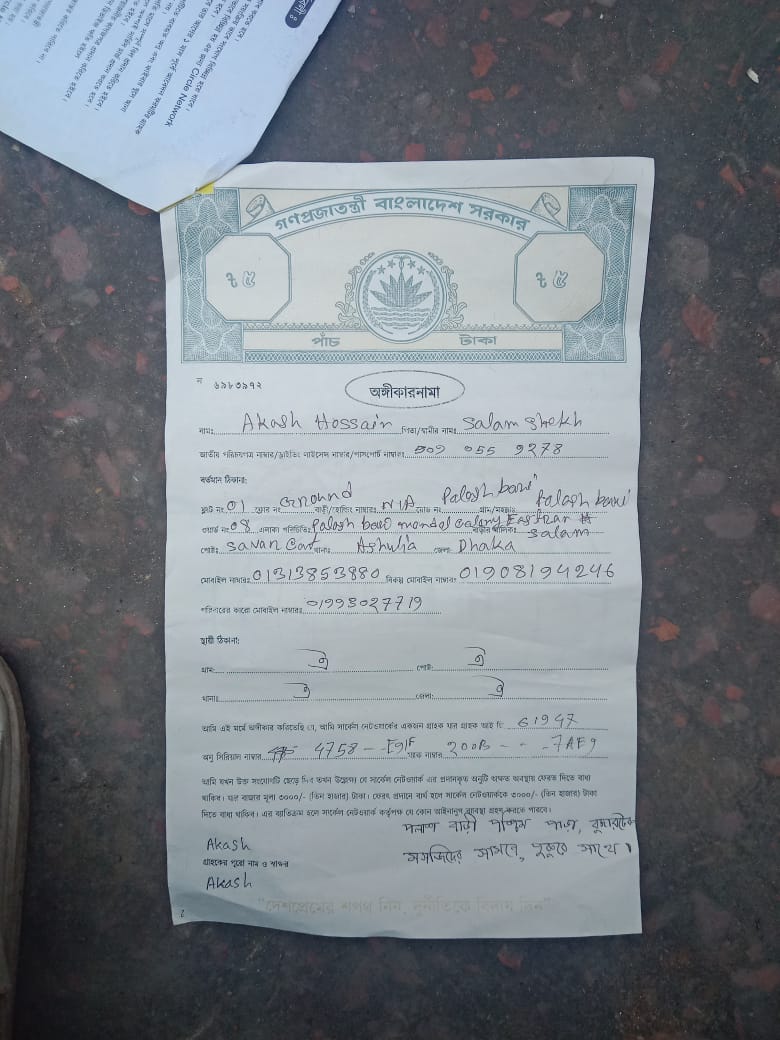 গণপ্রজাতন্ত্রী বাংলাদেশ সরকার
৳ ৫ ৳ ৫
পাঁচ টাকা
ন ৬৯৮৩৯৭২
অঙ্গীকারনামা
নামঃ Akash Hossain পিতা/স্বামীর নামঃ Salam Shekh
জাতীয় পরিচয়পত্র নাম্বার/ড্রাইভিং লাইসেন্স নাম্বার/পাসপোর্ট নাম্বারঃ 509 055 9278
বর্তমান ঠিকানা:
ফ্ল্যাট নং 01 ফ্লোর নং Ground বাড়ী/হোল্ডিং নাম্বারঃ N/A রোড নং Palash bari গ্রাম/মহল্লাঃ Palash bari
ওয়ার্ড নং 08 এলাকা পরিচিতিঃ Palash bari mondol Calony বাড়ীর মালিকঃ Salam
পোষ্টঃ Savar Cant থানাঃ Ashulia জেলাঃ Dhaka
মোবাইল নাম্বারঃ 01313853880 বিকল্প মোবাইল নাম্বারঃ 01908194246
পরিবারের কারো মোবাইল নাম্বারঃ 01993027719
স্থায়ী ঠিকানা:
গ্রাম: ঐ পোষ্ট: ঐ
থানাঃ ঐ জেলা: ঐ
আমি এই মর্মে অঙ্গীকার করিতেছি যে, আমি সার্কেল নেটওয়ার্কের একজন গ্রাহক যার গ্রাহক আই ডি 61947
অনু সিরিয়াল নাম্বার 4758 -- E91F ম্যাক নাম্বার 200B - - - 7AF9
আমি যখন উক্ত সংযোগটি ছেড়ে দিব তখন উল্লেখ্য যে সার্কেল নেটওয়ার্ক এর প্রদানকৃত অনুটি অক্ষত অবস্থায় ফেরত দিতে বাধ্য
থাকিব। যার বাজার মূল্য ৩০০০/- (তিন হাজার) টাকা। ফেরৎ প্রদানে ব্যর্থ হলে সার্কেল নেটওয়ার্ককে ৩০০০/- (তিন হাজার) টাকা
দিতে বাধ্য থাকিব। এর ব্যতিক্রম হলে সার্কেল নেটওয়ার্ক কর্তৃপক্ষ যে কোন আইনানুগ ব্যবস্থা গ্রহণ করতে পারবে।
পলাশ বাড়ী পশ্চিম পাড়া,
মসজিদের সামনে, পুকুরে সাথে।
Akash
গ্রাহকের পুরো নাম ও স্বাক্ষর
Akash
"দেশপ্রেমের শপথ নিন, দুর্নীতিকে বিদায় দিন"